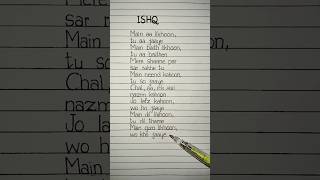 ISHQ
Main aa likhoon,
tu aa jaaye
Main baith likhoon,
tu aa baithe
Mere shaane par
sar rakhe tu
Main neend kahoon
tu so jaaye
Chal, aa, ek aisi
nazm kahoon
Jo lafz kahoon,
wo ho jaaye
Main dil likhoon,
tu dil thame
Main gum likhoon,
wo kho jaaye